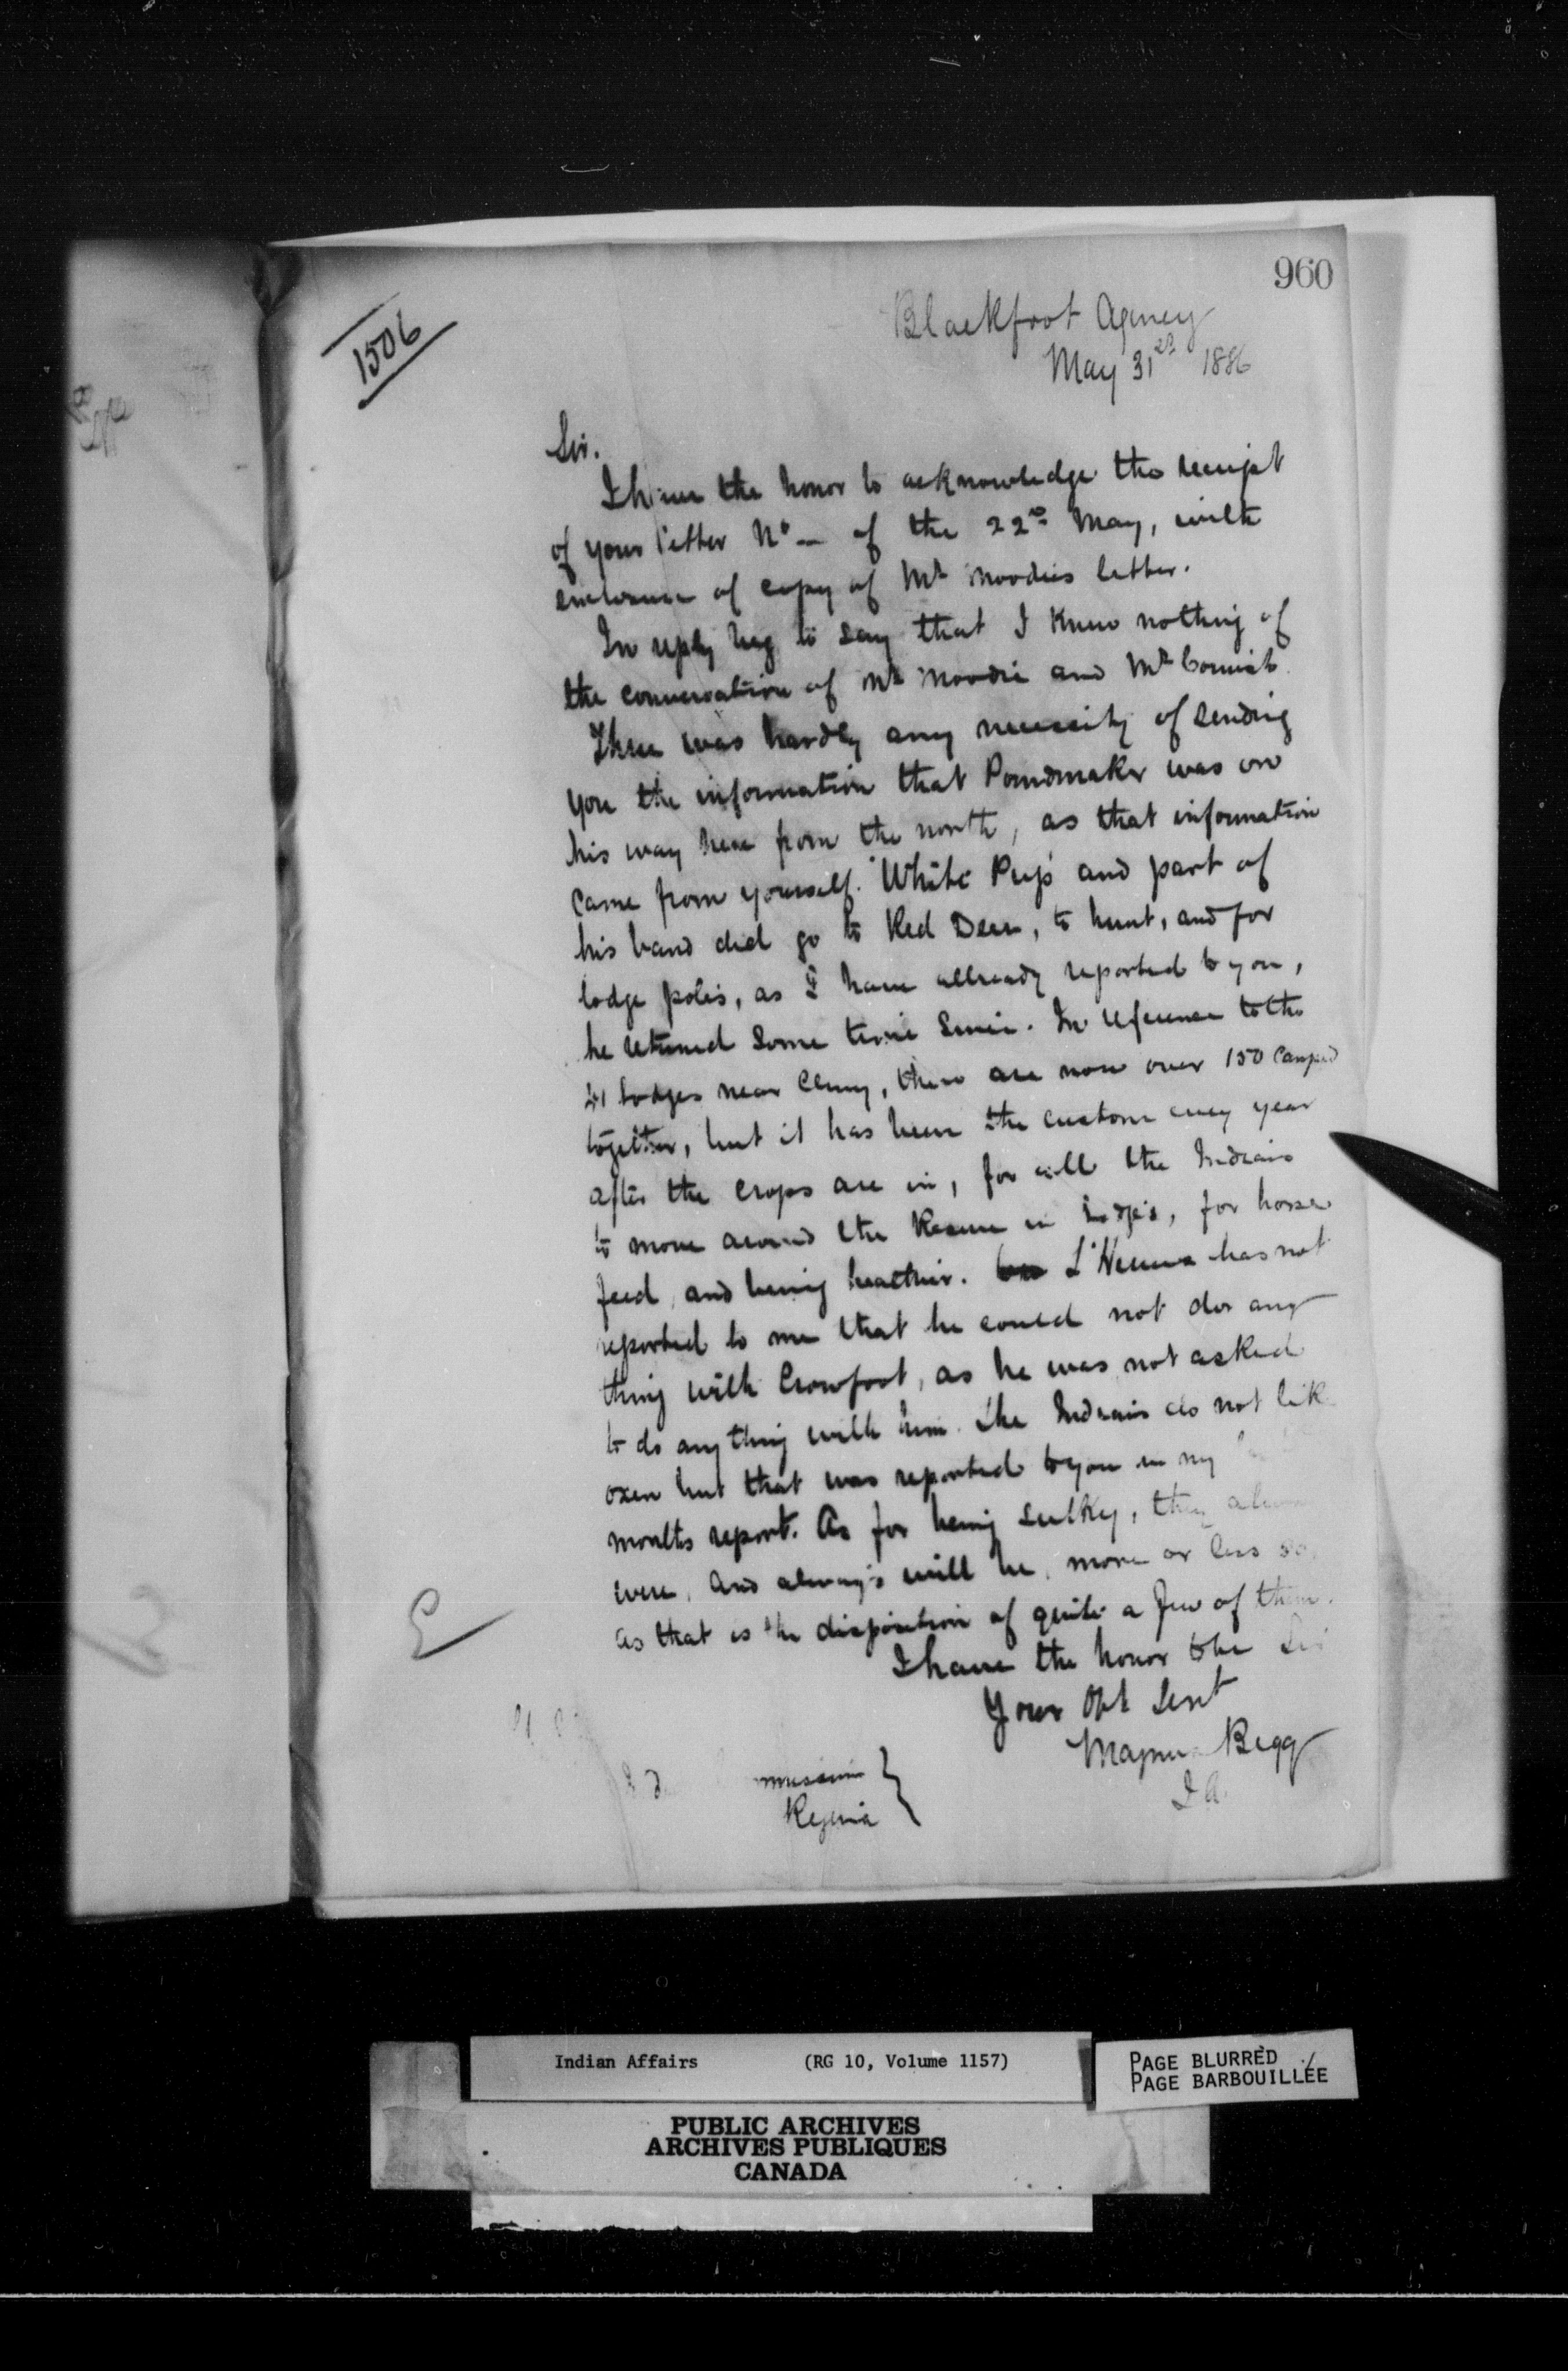 960
1506
Blackfoot Agency
May 31st 1886
Sir.
I have the honor to acknowledge the receipt
of your letter No — of the 22nd May, with
enclosure of copy of Mr Moodies letter.
In reply beg to say that I knew nothing of
the conversation of Mr Moodie and Mr Cornish
There was hardly any necessity of sending
you the information that Poundmaker was on
his way here from the north, as that information
came from yourself. White Pup and part of
his band did go to Red Deer, to hunt, and for
lodge poles, as I have allready reported to you,
he returned some time since. In reference to the
lodges near Cluny, there are now over 150 camped
together, but it has been the custom every year
after the crops are in, for all the Indians
to move around the Reserve in Lodges, for horse
feed, and being healthier. L'Heureux has not
reported to me that he could not do any
thing with Crowfoot, as he was not asked
to do anything with him. The Indians do not like
oxen but that was reported to you in my
months report. As for being sulky, they always
were, and always will be, more or less so,
as that is the disposition of quite a few of them.
I have the honor to be Sir
Your Obt Servt
Magnus Begg
I A.
Regina
Indian Affairs (RG 10, Volume 1157)
PAGE BLURRED
PAGE BARBOUILLÉE
PUBLIC ARCHIVES
ARCHIVES PUBLIQUES
CANADA